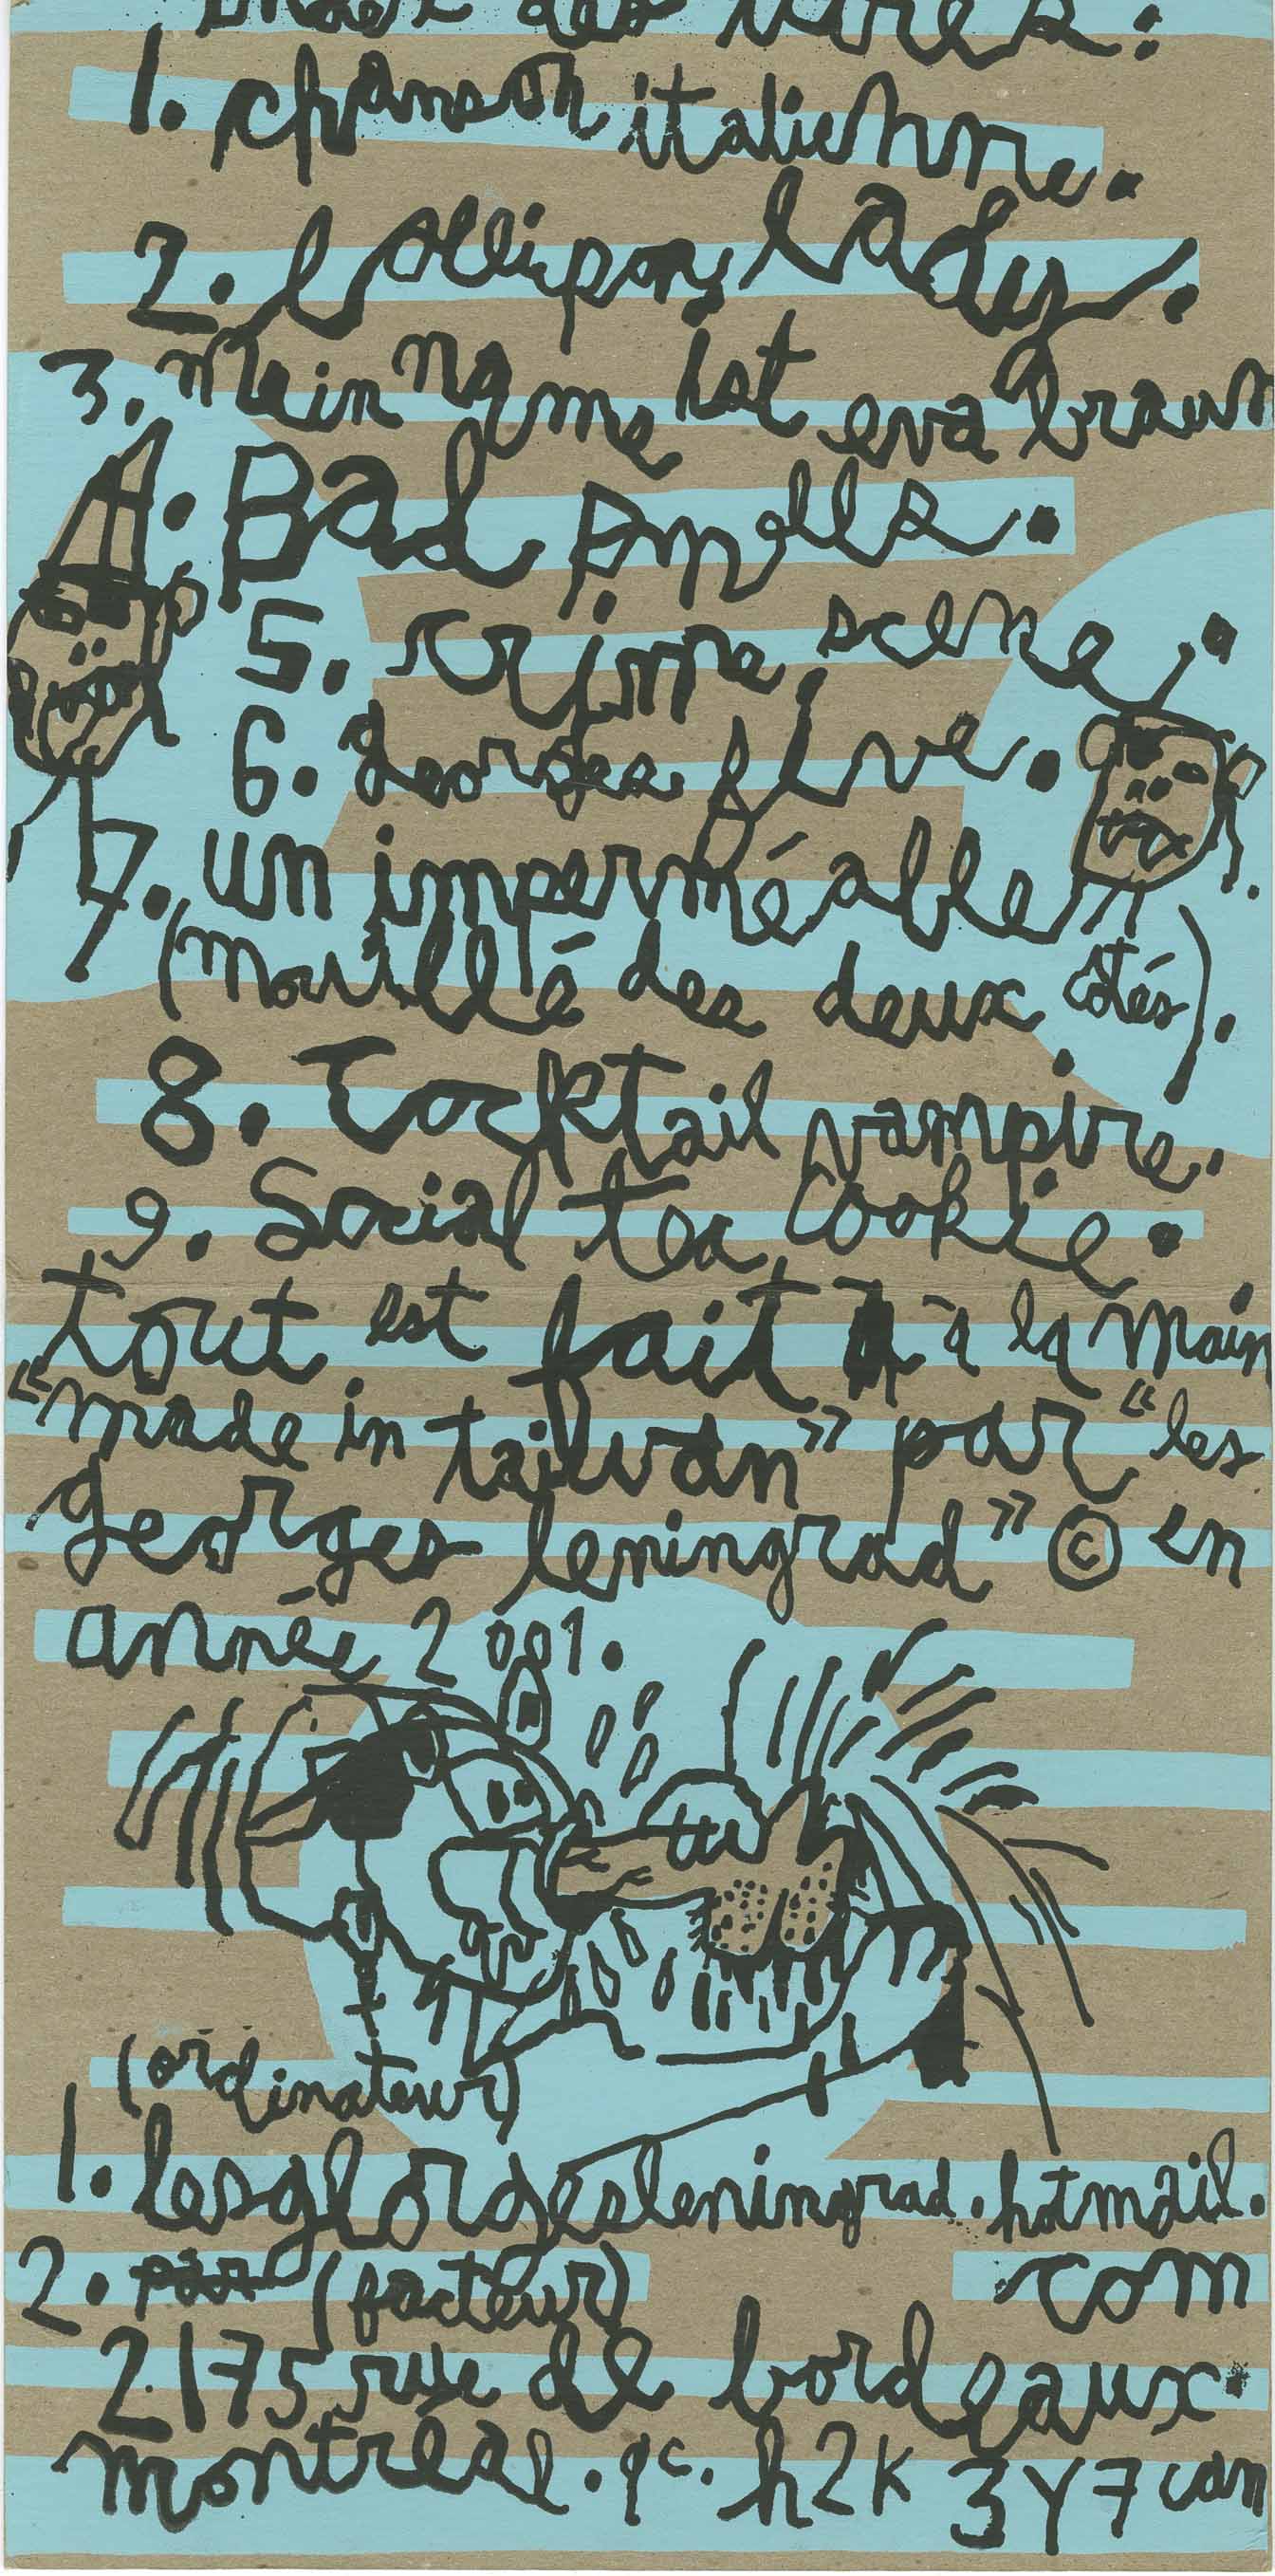 index des titres :
1. chanson italienne.
2. lollipop lady.
3. mein name ist eva braun
4. Bad smells.
5. crime scene.
6. georges five.
7. un imperméable
(mouillé des deux côtés).
8. Cocktail vampire.
9. Social tea cookie.
tout est fait à la main
"made in taiwan" par "les
georges leningrad" © en
année 2001.
(ordinateur)
1. lesgeorgesleningrad.hotmail.
com
2. (facteur)
2175 rue de bordeaux
montréal. qc. h2K 3Y7 can